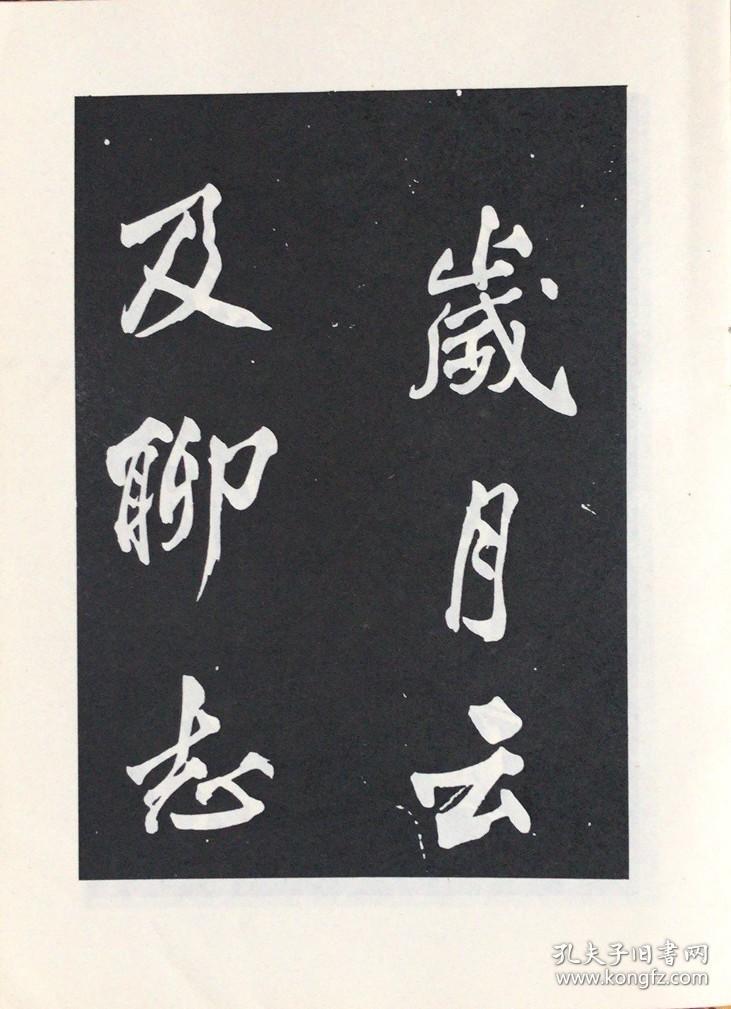 歲月云
及聊志
孔夫子旧書网
www.kongfz.com